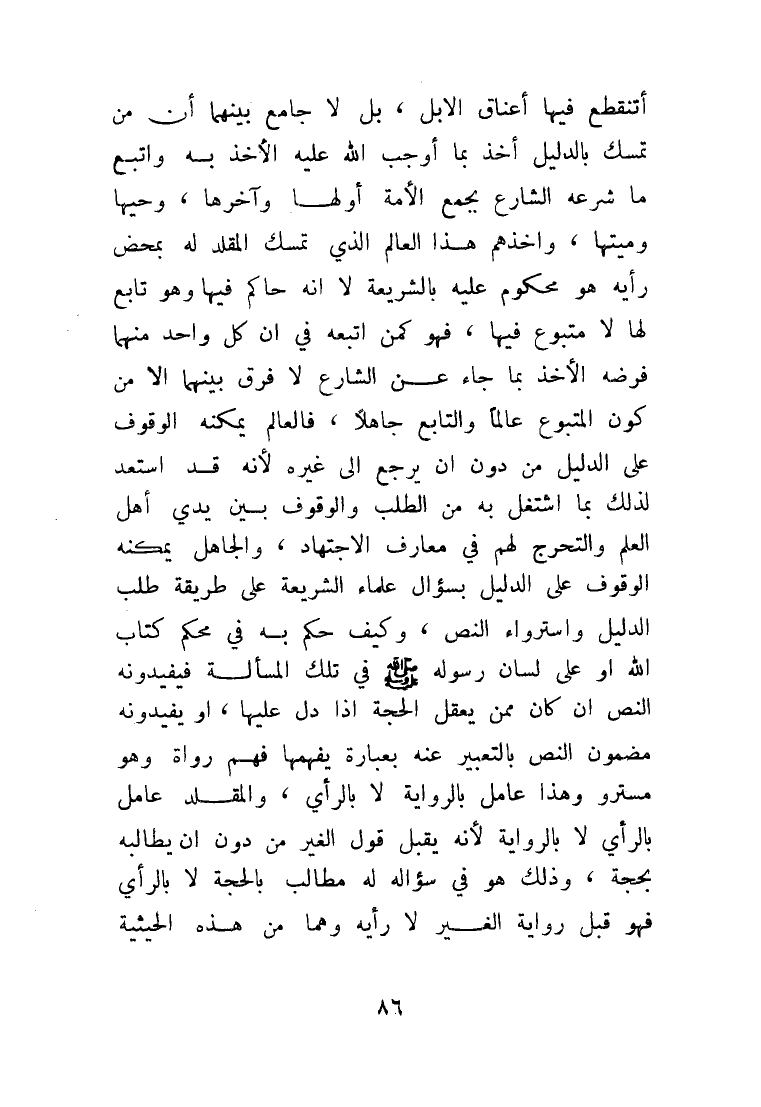 أتنقطع فيها أعناق الابل ، بل لا جامع بينهما أن من
تمسك بالدليل أخذ بما أوجب الله عليه الأخذ به واتبع
ما شرعه الشارع بجمع الأمة أولها وآخرها ، وحيها
وميتها ، واخذهم هذا العالم الذي تمسك المقلد له بمحض
رأيه هو محكوم عليه بالشريعة لا انه حاكم فيها وهو تابع
لها لا متبوع فيها ، فهو كمن اتبعه في ان كل واحد منهما
فرضه الأخذ بما جاء عن الشارع لا فرق بينهما الا من
كون المتبوع عالماً والتابع جاهلاً ، فالعالم يمكنه الوقوف
على الدليل من دون ان يرجع الى غيره لأنه قد استعد
لذلك بما اشتغل به من الطلب والوقوف بين يدي أهل
العلم والتحرج لهم في معارف الاجتهاد ، والجاهل يمكنه
الوقوف على الدليل بسؤال علماء الشريعة على طريقة طلب
الدليل واسترواء النص ، وكيف حكم به في محكم كتاب
الله او على لسان رسوله ﷺ في تلك المسألة فيفيدونه
النص ان كان ممن يعقل الحجة اذا دل عليها ، او يفيدونه
مضمون النص بالتعبير عنه بعبارة يفهمها فهم رواة وهو
مسترو وهذا عامل بالرواية لا بالرأي ، والمقلد عامل
بالرأي لا بالرواية لأنه يقبل قول الغير من دون ان يطالبه
بحجة ، وذلك هو في سؤاله له مطالب بالحجة لا بالرأي
فهو قبل رواية الغير لا رأيه وهما من هذه الحيثية
٨٦